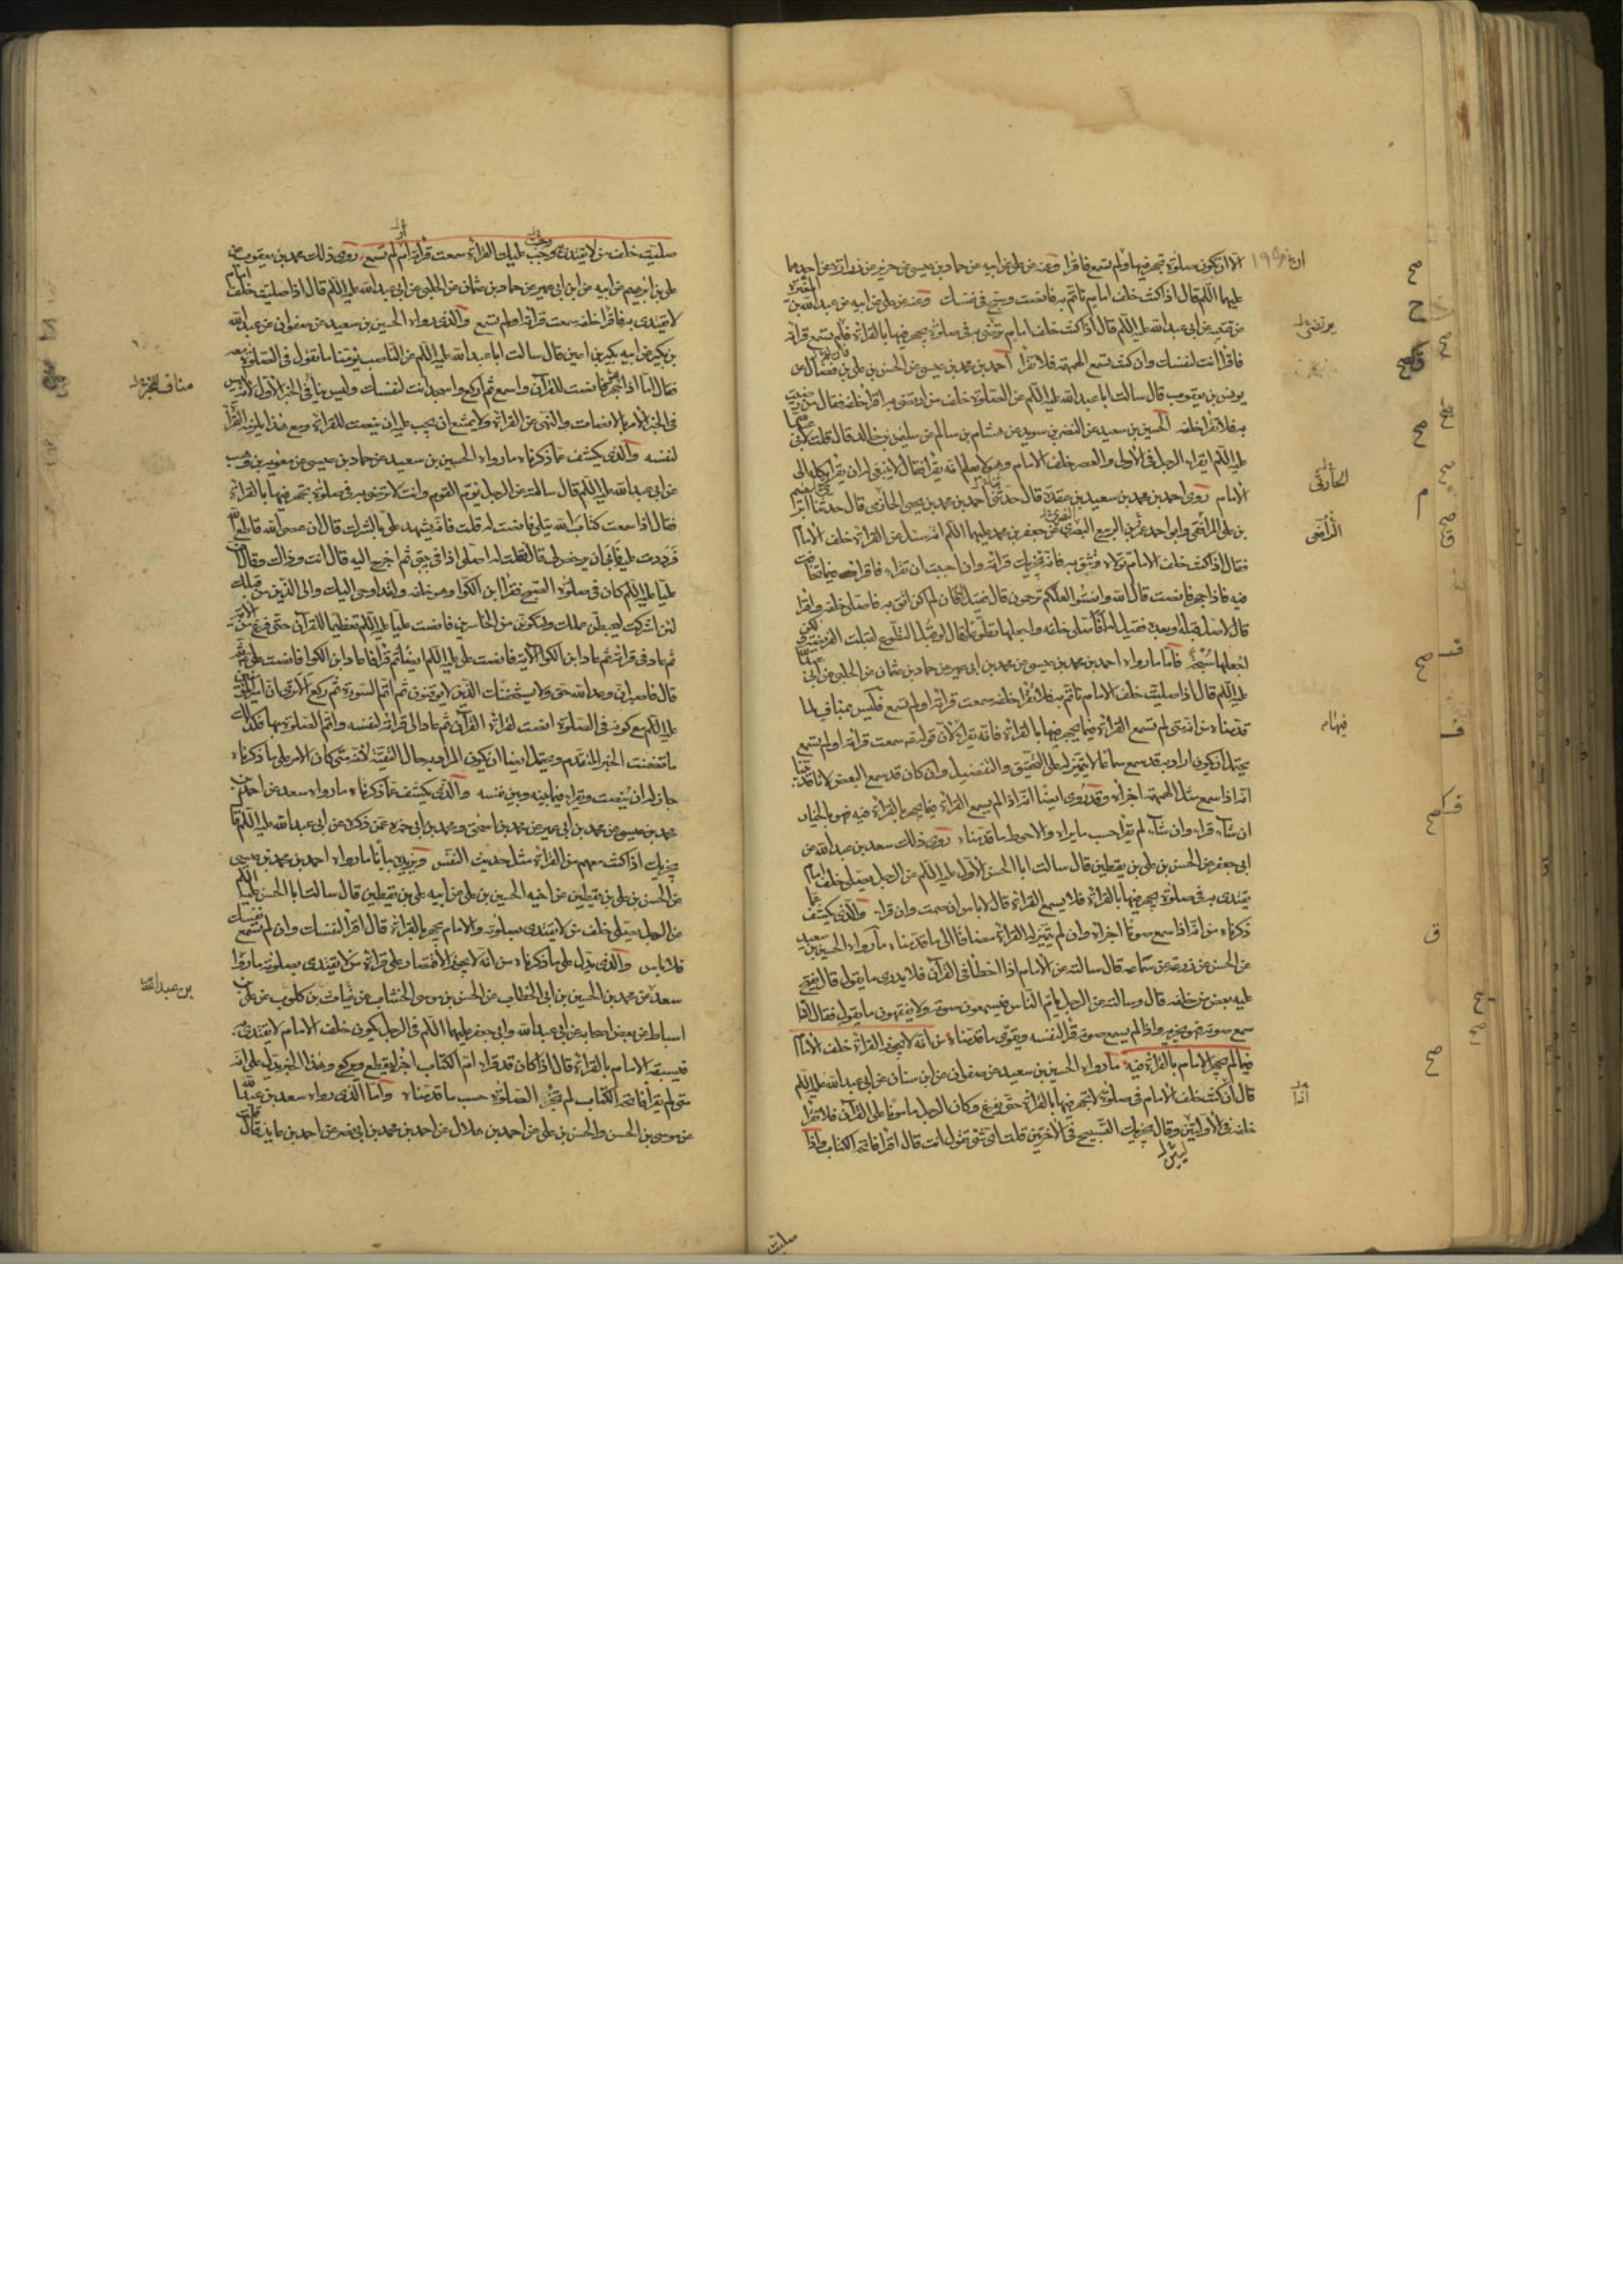 الا ان تكون صلوة تجهر فيها ولم تسمع فاقرا وعنه عن علي عن ابيه عن حماد بن عيسى عن حريز عن زرارة عن احدهما
عليهما السلام قال اذا كنت خلف امام تاتم به فانصت وسبح في نفسك وعنه عن علي عن ابيه عن عبد الله بن المغيرة
عن قتيبة عن ابي عبد الله عليه السلام قال اذا كنت خلف امام ترتضي به في صلوة يجهر فيها بالقرائة فلم تسمع قرائته
فاقرا انت لنفسك وان كنت تسمع الهمهمة فلا تقرا احمد بن محمد بن عيسى عن الحسن بن علي بن فضال عن
يونس بن يعقوب قال سالت ابا عبد الله عليه السلام عن الصلوة خلف من ارتضي به اقرا خلفه فقال من رضيت
به فلا تقرا خلفه الحسين بن سعيد عن النضر بن سويد عن هشام بن سالم عن سليمن بن خالد قال قلت لابي عبد الله
عليه السلام ايقرا الرجل في الاولى والعصر خلف الامام وهو لا يعلم انه يقرا فقال لا ينبغي له ان يقرا يكله الى
الامام روى احمد بن محمد بن سعيد بن عقدة قال حدثني احمد بن محمد بن يحيى الخازمي قال حدثنا
بن علي المرافقي وابو احمد عمر بن الربيع البصري عن جعفر بن محمد عليهما السلام انه سئل عن القرائة خلف الامام
فقال اذا كنت خلف الامام تولاه وتثق به فانه يجزيك قرائته وان احببت ان تقراء فاقرا فيما يخافت
فيه فاذا جهر فانصت قال الله وانصتوا لعلكم ترحمون قال فقيل له فان لم اكن اثق به فاصلي خلفه واقرا
قال لا صل قبله او بعده فقيل له افاصلي خلفه واجعلها تطوعا قال لو قبل التطوع لقبلت الفريضة ولكن
اجعلها سبحة فاما ما رواه احمد بن محمد بن عيسى عن محمد بن ابي عمير عن حماد بن عثمان عن الحلبي عن ابي عبد الله
عليه السلام قال اذا صليت خلف الامام تاتم به فلا تقرا خلفه سمعت قرائته او لم تسمع فليس بمناف لما
قدمناه من انه متى لم تسمع القرائة فيما يجهر فيها بالقرائة فانه يقرا لان قوله سمعت قرائته او لم تسمع
يحتمل ان يكون اراد به قد سمع سماعا لا يتميز له على التحقيق والتفصيل وان كان قد سمع البعض لانا قد بينا
انه اذا سمع مثل الهمهمة اجزاه وقد روى ايضا انه اذا لم يسمع القرائة فيما يجهر بالقرائة فيه فهو بالخيار
ان شاء قراء وان شاء لم يقرا حسب ما يراه والاحوط ما قدمناه روى ذلك سعد بن عبد الله عن
ابي جعفر عن الحسن بن علي بن يقطين قال سالت ابا الحسن الاول عليه السلام عن الرجل يصلي خلف امام
يقتدى به في صلوة يجهر فيها بالقرائة فلا يسمع القرائة قال لا باس ان صمت وان قراء والذي يكشف عما
ذكرناه من انه اذا سمع صوتا اجزاه وان لم يتميز له القرائة مضافا الى ما قدمناه ما رواه الحسين بن سعيد
عن الحسن عن زرعة عن سماعة قال سالته عن الامام اذا اخطا في القرآن فلا يدري ما يقول قال يفتح
عليه بعض من خلفه قال وسالته عن الرجل يام الناس فيسمعون صوته ولا يفقهون ما يقول فقال اذا
سمع صوته فهو يجزيه واذا لم يسمع صوته قرا لنفسه ويقوي ما قدمناه من انه لا يجوز القرائة خلف الامام
فيما لم يجهر الامام بالقرائة فيه ما رواه الحسين بن سعيد عن صفوان عن ابن سنان عن ابي عبد الله عليه السلام
قال ان كنت خلف الامام في صلوة لا تجهر فيها بالقرائة حتى يفرغ وكان الرجل مامونا على القرآن فلا تقرا
خلفه في الاوليين وقال يجزيك التسبيح في الاخيرتين قلت اي شئ تقول انت قال اقرا فاتحة الكتاب واذا
صليت
صليت خلف من لا يقتدى به وجب عليك القرائة سمعت قرائته ام لم تسمع روى ذلك محمد بن يعقوب عن
علي بن ابرهيم عن ابيه عن ابن ابي عمير عن حماد بن عثمان عن الحلبي عن ابي عبد الله عليه السلام قال اذا صليت خلف امام
لا يقتدى به فاقرا خلفه سمعت قرائته او لم تسمع والذي رواه الحسين بن سعيد عن صفوان عن عبد الله
بن بكير عن ابيه بكير بن اعين قال سالت ابا عبد الله عليه السلام عن الناصب يؤمنا ما تقول في الصلوة معه
فقال اما اذا جهر فانصت للقرآن واسمع ثم اركع واسجد انت لنفسك وليس ينافي الخبر الاول لانه ليس
في الخبر الامر بالانصات والنهي عن القرائة ولا يمتنع ان يجب عليه ان ينصت للقرائة ومع هذا يلزمه القرائة
لنفسه والذي يكشف عما ذكرناه ما رواه الحسين بن سعيد عن حماد بن عيسى عن معوية بن وهب
عن ابي عبد الله عليه السلام قال سالته عن الرجل يؤم القوم وانت لا ترضى به في صلوة يجهر فيها بالقرائة
فقال اذا سمعت كتاب الله يتلى فانصت له قلت فانه يشهد علي بالشرك قال ان عصى الله فاطع الله
فرددت عليه فابى ان يرخص لي قال فقلت له اصلي اذا في بيتي ثم اخرج اليه قال انت وذاك وقال ان
عليا عليه السلام كان في صلوة الصبح فقرا ابن الكوا وهو خلفه ولقد اوحي اليك والى الذين من قبلك
لئن اشركت ليحبطن عملك ولتكونن من الخاسرين فانصت علي عليه السلام تعظيما للقرآن حتى فرغ من الآية
ثم عاد في قرائته ثم عاد ابن الكوا الآية فانصت علي عليه السلام ايضا ثم قرا فاعاد ابن الكوا فانصت علي ثم
قال فاصبر ان وعد الله حق ولا يستخفنك الذين لا يوقنون ثم اتم السورة ثم ركع الا ترى ان امير المؤمنين
عليه السلام مع كونه في الصلوة انصت لقرائة القرآن ثم عاد الى قرائته لنفسه واتم الصلوة بها فكذلك
ما تضمنت الخبر المتقدم ويحتمل ايضا ان يكون المراد به حال التقية لانه متى كان الامر على ما ذكرناه
جاز له ان ينصت ويقراء فيما بينه وبين نفسه والذي يكشف عما ذكرناه ما رواه سعد عن احمد بن
محمد بن عيسى عن محمد بن ابي عمير عن محمد بن اسحق ومحمد بن ابي حمزة عمن ذكره عن ابي عبد الله عليه السلام قال
يجزيك اذا كنت معهم من القرائة مثل حديث النفس ويزيده بيانا ما رواه احمد بن محمد بن عيسى
عن الحسن بن علي بن يقطين عن اخيه الحسين بن علي عن ابيه علي بن يقطين قال سالت ابا الحسن عليه السلام
عن الرجل يصلي خلف من لا يقتدى بصلوته والامام يجهر بالقرائة قال اقرا لنفسك وان لم تسمع نفسك
فلا باس والذي يدل على ما ذكرناه من انه لا يجوز الاقتصار على قرائة من لا يقتدى بصلوته ما رواه
سعد عن محمد بن الحسين بن ابي الخطاب عن الحسن بن موسى الخشاب عن غياث بن كلوب عن علي بن
اسباط عن بعض اصحابه عن ابي عبد الله وابي جعفر عليهما السلام في الرجل يكون خلف الامام لا يقتدى به
فيسبقه الامام بالقرائة قال اذا كان قد قراء ام الكتاب اجزاه يقطع ويركع وهذا الخبر يدل على انه
متى لم يقرا فاتحة الكتاب لم تجز الصلوة حسب ما قدمناه واما الذي رواه سعد بن عبد الله
عن موسى بن الحسن والحسن بن علي عن احمد بن هلال عن احمد بن محمد بن ابي نصر عن احمد بن عايذ قال
مناف للخبر
بن عبد الله